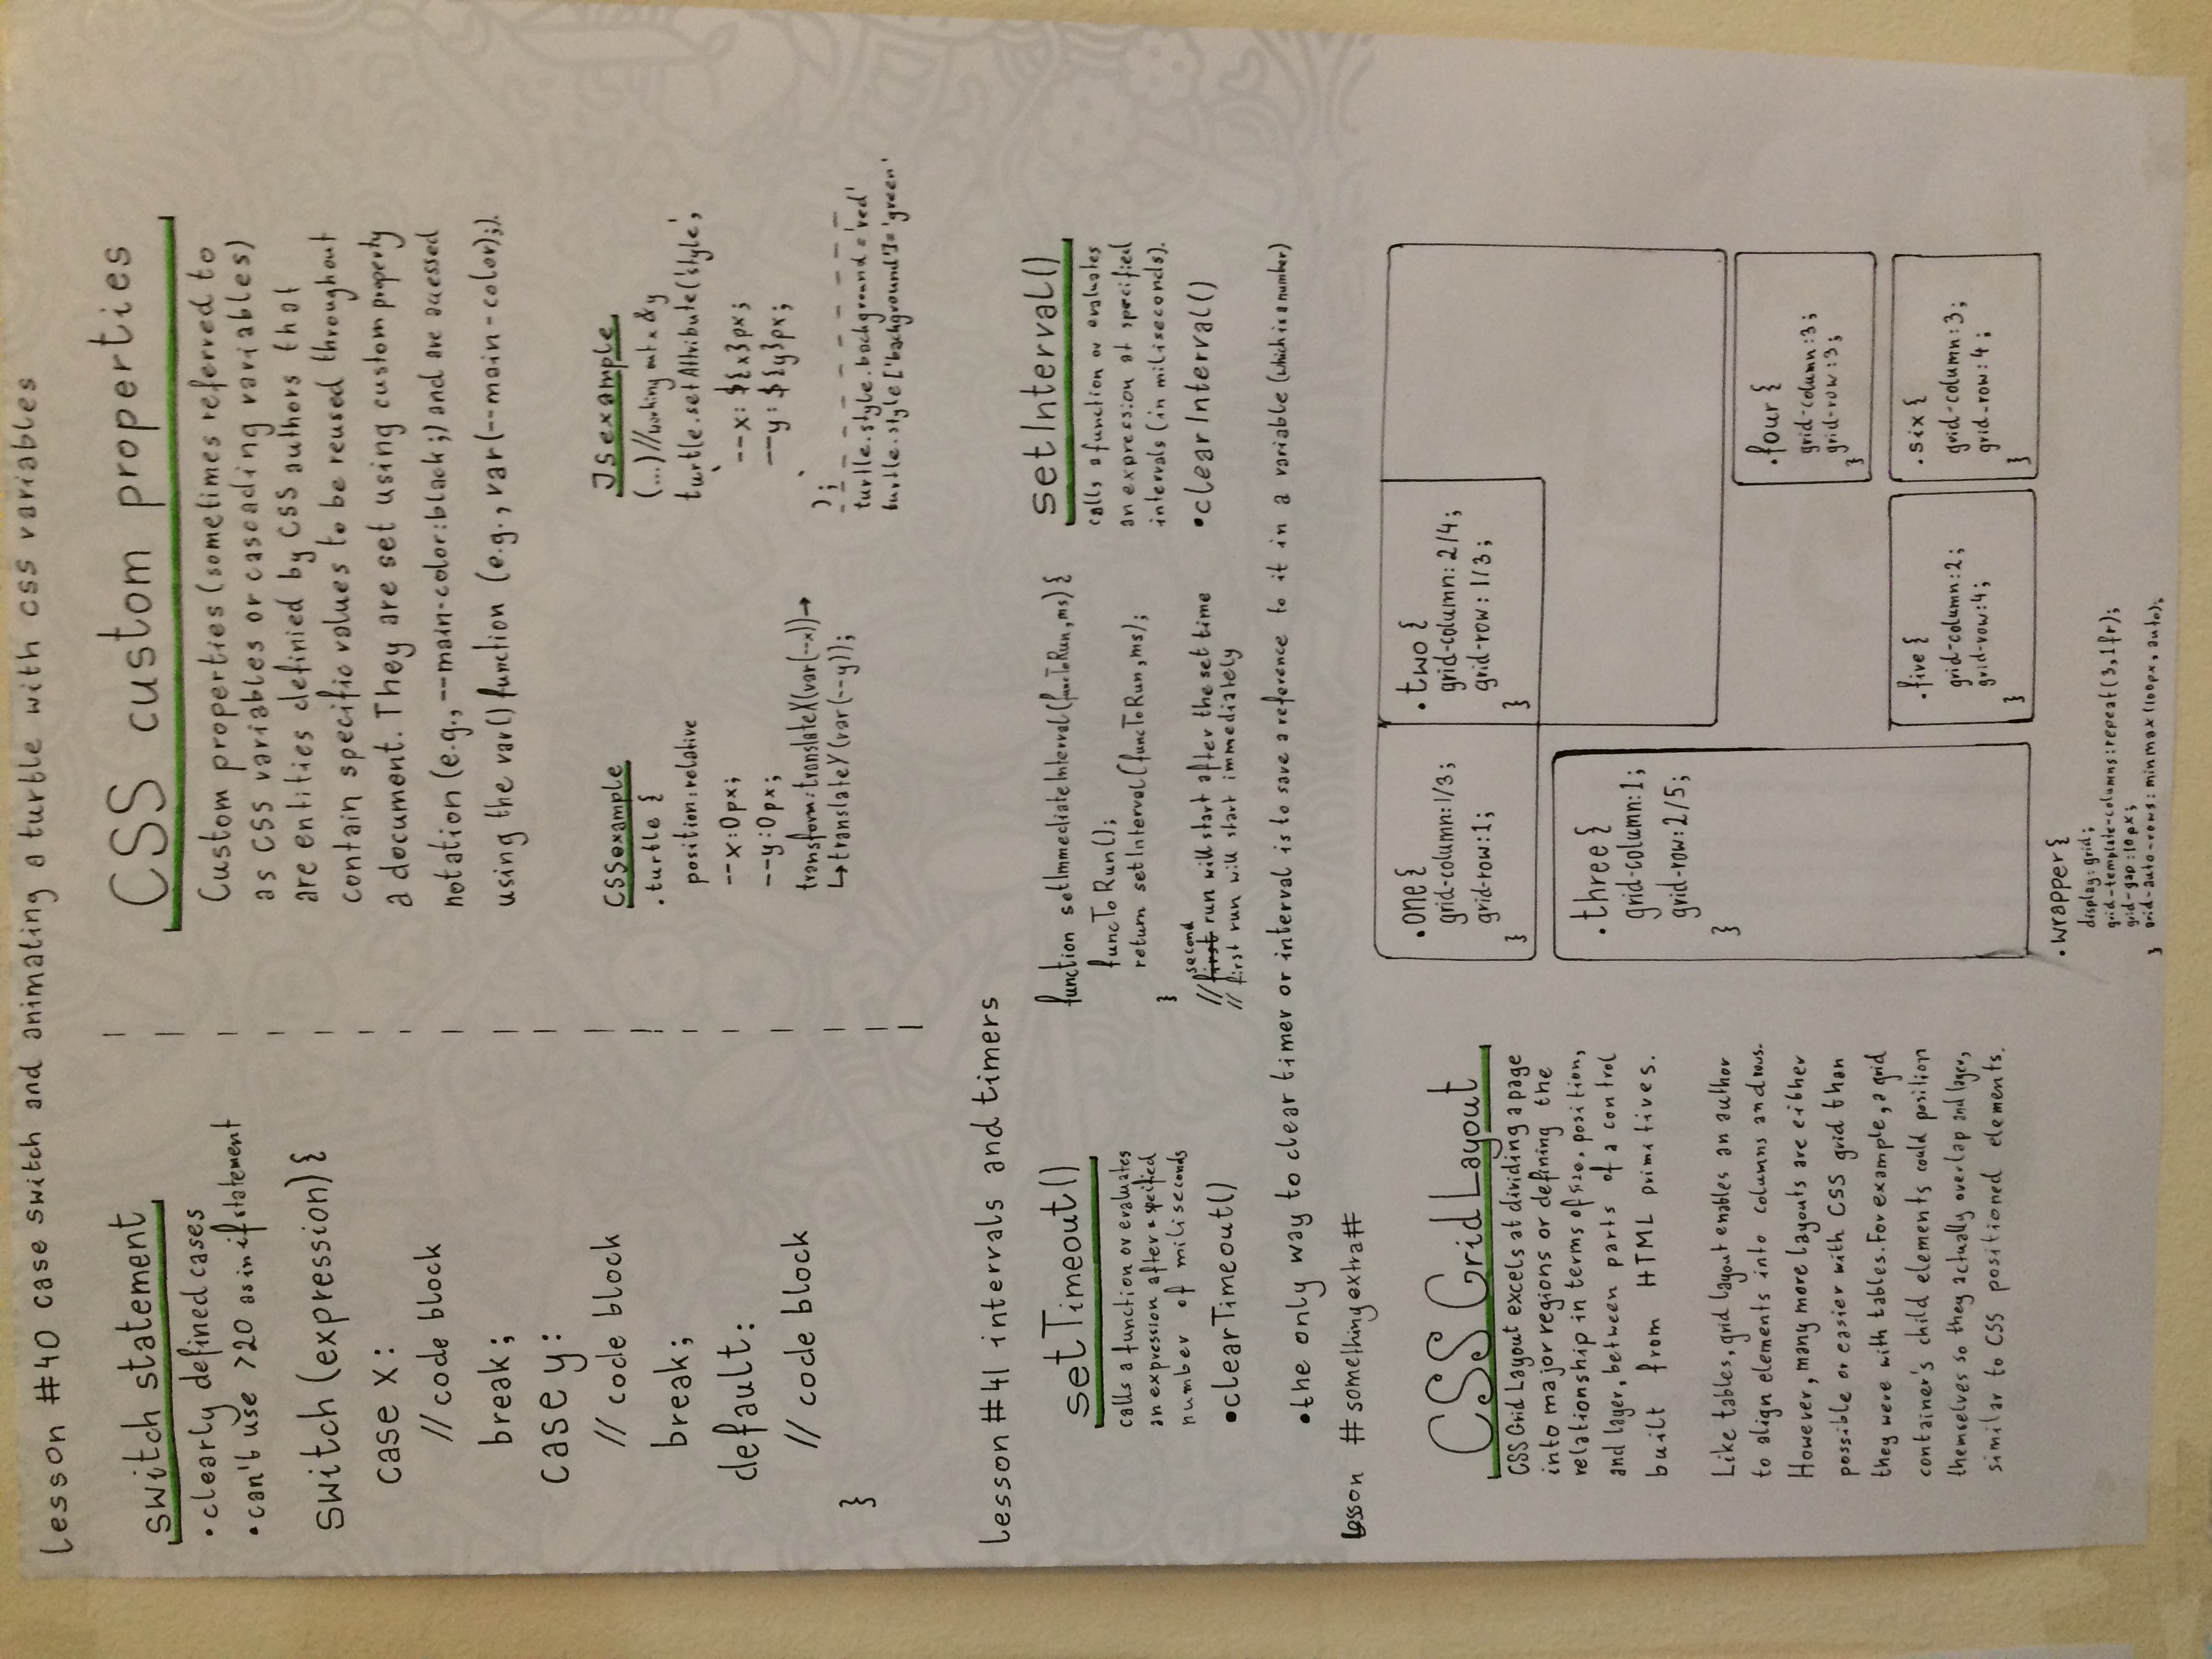 lesson #40 case switch and animating a turtle with css variables
switch statement
• clearly defined cases
• can't use >20 as in if statement
switch (expression) {
case x:
// code block
break;
case y:
// code block
break;
default:
// code block
}
CSS custom properties
Custom properties (sometimes referred to
as CSS variables or cascading variables)
are entities definied by CSS authors that
contain specific values to be reused throughout
a document. They are set using custom property
notation (e.g., --main-color:black;) and are acessed
using the var() function (e.g., var(--main-color);).
CSS example
.turtle {
position: relative
--x:0px;
--y:0px;
transform: translateX(var(--x))→
↳translateY(var(--y));
JS example
(...) //working out x & y
turtle.setAttribute('style',
`
--x: ${x}px;
--y: ${y}px;
`
);
turtle.style.background = 'red'
turtle.style['background'] = 'green'
lesson #41 intervals and timers
setTimeout()
calls a function or evaluates
an expression after a specified
number of miliseconds
• clearTimeout()
function setImmediateInterval(funcToRun, ms) {
funcToRun();
return setInterval(funcToRun, ms);
}
second
// first run will start after the set time
// first run will start immediately
setInterval()
calls a function or evaluates
an expression at specified
intervals (in miliseconds).
• clearInterval()
• the only way to clear timer or interval is to save a reference to it in a variable (which is a number)
lesson #something extra#
CSS Grid Layout
CSS Grid Layout excels at dividing a page
into major regions or defining the
relationship in terms of size, position,
and layer, between parts of a control
built from HTML primitives.
Like tables, grid layout enables an author
to align elements into columns and rows.
However, many more layouts are either
possible or easier with CSS grid than
they were with tables. For example, a grid
container's child elements could position
themselves so they actually overlap and layer,
similar to CSS positioned elements.
.one {
grid-column: 1/3;
grid-row: 1;
}
.two {
grid-column: 2/4;
grid-row: 1/3;
}
.three {
grid-column: 1;
grid-row: 2/5;
}
.four {
grid-column: 3;
grid-row: 3;
}
.five {
grid-column: 2;
grid-row: 4;
}
.six {
grid-column: 3;
grid-row: 4;
}
.wrapper {
display: grid;
grid-template-columns: repeat(3, 1fr);
grid-gap: 10px;
grid-auto-rows: minmax(100px, auto);
}